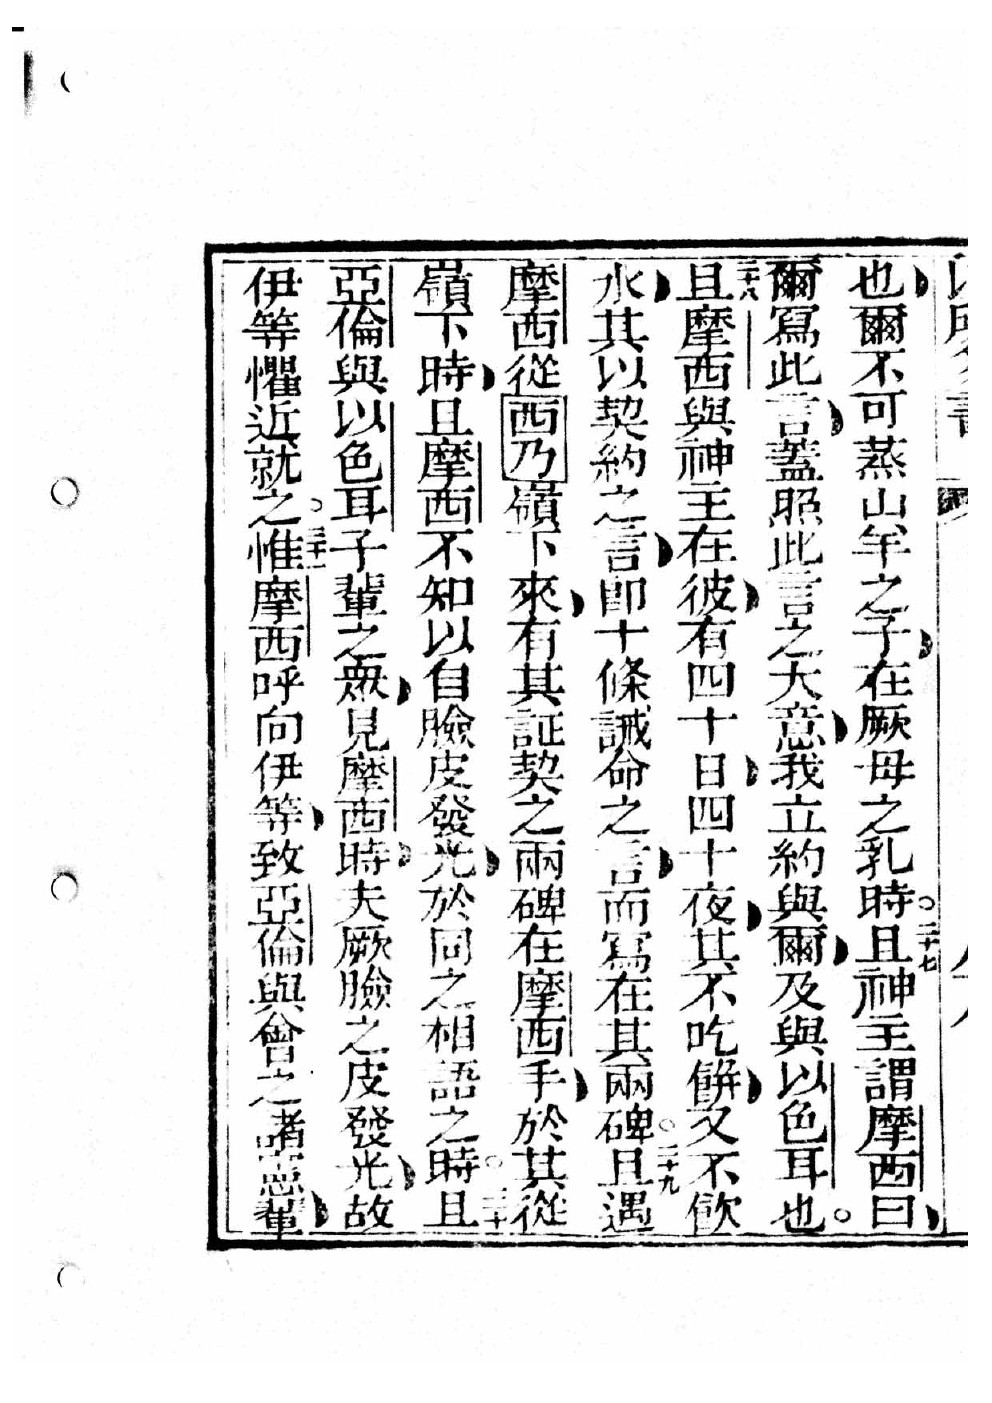 也爾不可蒸山羊之子在厥母之乳時。二十七且神主謂摩西曰
爾寫此言蓋照此言之大意我立約與爾及與以色耳也。
二十八且摩西與神主在彼有四十日四十夜其不吃餅又不飲
水其以契約之言即十條誡命之言而寫在其兩碑。二十九且遇
摩西從西乃嶺下來有其証契之兩碑在摩西手於其從
嶺下時且摩西不知以自臉皮發光於同之相語之時。三十且
亞倫與以色耳子輩之眾見摩西時夫厥臉之皮發光故
伊等懼近就之。三十一惟摩西呼向伊等致亞倫與會之諸憲輩